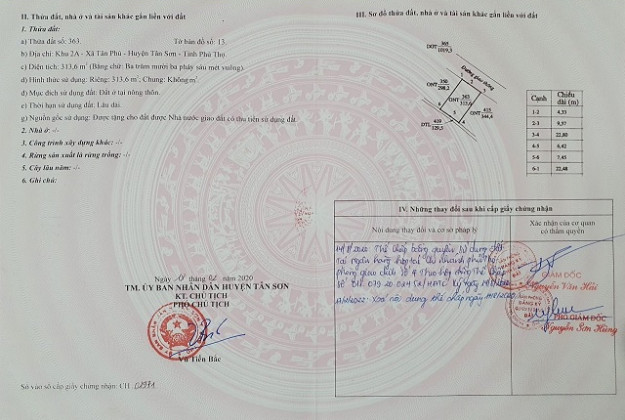 II. Thửa đất, nhà ở và tài sản khác gắn liền với đất
1. Thửa đất:
a) Thửa đất số: 363. Tờ bản đồ số: 13.
b) Địa chỉ: Khu 2A - Xã Tân Phú - Huyện Tân Sơn - Tỉnh Phú Thọ
c) Diện tích: 313,6 m² (Bằng chữ: Ba trăm mười ba phảy sáu mét vuông).
d) Hình thức sử dụng: Riêng: 313,6 m²; Chung: Không m²
đ) Mục đích sử dụng đất: Đất ở tại nông thôn.
e) Thời hạn sử dụng đất: Lâu dài.
g) Nguồn gốc sử dụng: Được tặng cho đất được Nhà nước giao đất có thu tiền sử dụng đất.
2. Nhà ở: -/-
3. Công trình xây dựng khác: -/-
4. Rừng sản xuất là rừng trồng: -/-
5. Cây lâu năm: -/-
6. Ghi chú:
Ngày tháng năm 2020
TM. ỦY BAN NHÂN DÂN HUYỆN TÂN SƠN
KT. CHỦ TỊCH
PHÓ CHỦ TỊCH
Vũ Tiến Bắc
Số vào sổ cấp giấy chứng nhận: CH
III. Sơ đồ thửa đất, nhà ở và tài sản khác gắn liền với đất
DGT 365 1019,3
Đường giao thông
ONT 350 298,2
ONT 363 313,6
ONT
DTL
1
2
3
4
5
6
Cạnh Chiều dài (m)
1-2 4,53
2-3 9,57
3-4 22,80
4-5 6,42
5-6 7,45
6-1 22,48
IV. Những thay đổi sau khi cấp giấy chứng nhận
Nội dung thay đổi và cơ sở pháp lý
Xác nhận của cơ quan có thẩm quyền
Thế chấp bằng quyền sử dụng đất
Tại ngân hàng
phòng giao dịch số 4 theo hợp đồng thế chấp
Xóa nội dung thế chấp ngày
GIÁM ĐỐC
Nguyễn Văn Hải
PHÓ GIÁM ĐỐC
Nguyễn Sơn Hùng